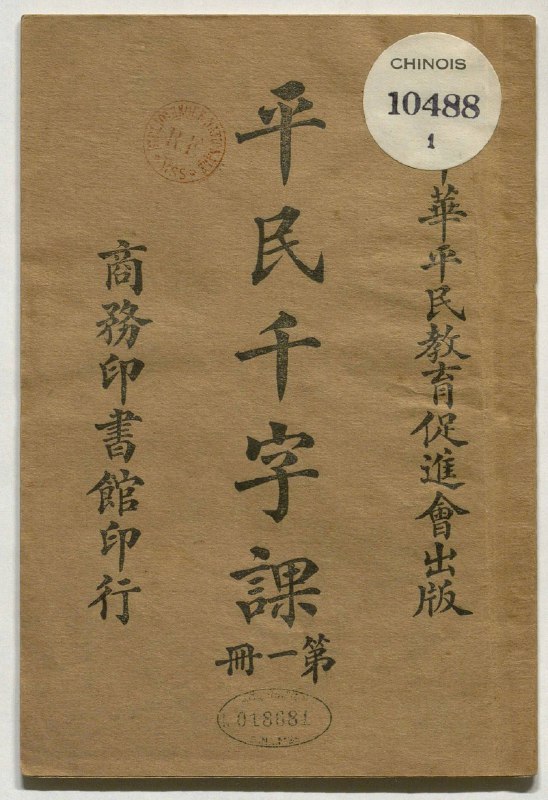 CHINOIS
10488
1
華平民教育促進會出版
平民千字課
第一冊
商務印書館印行
018681